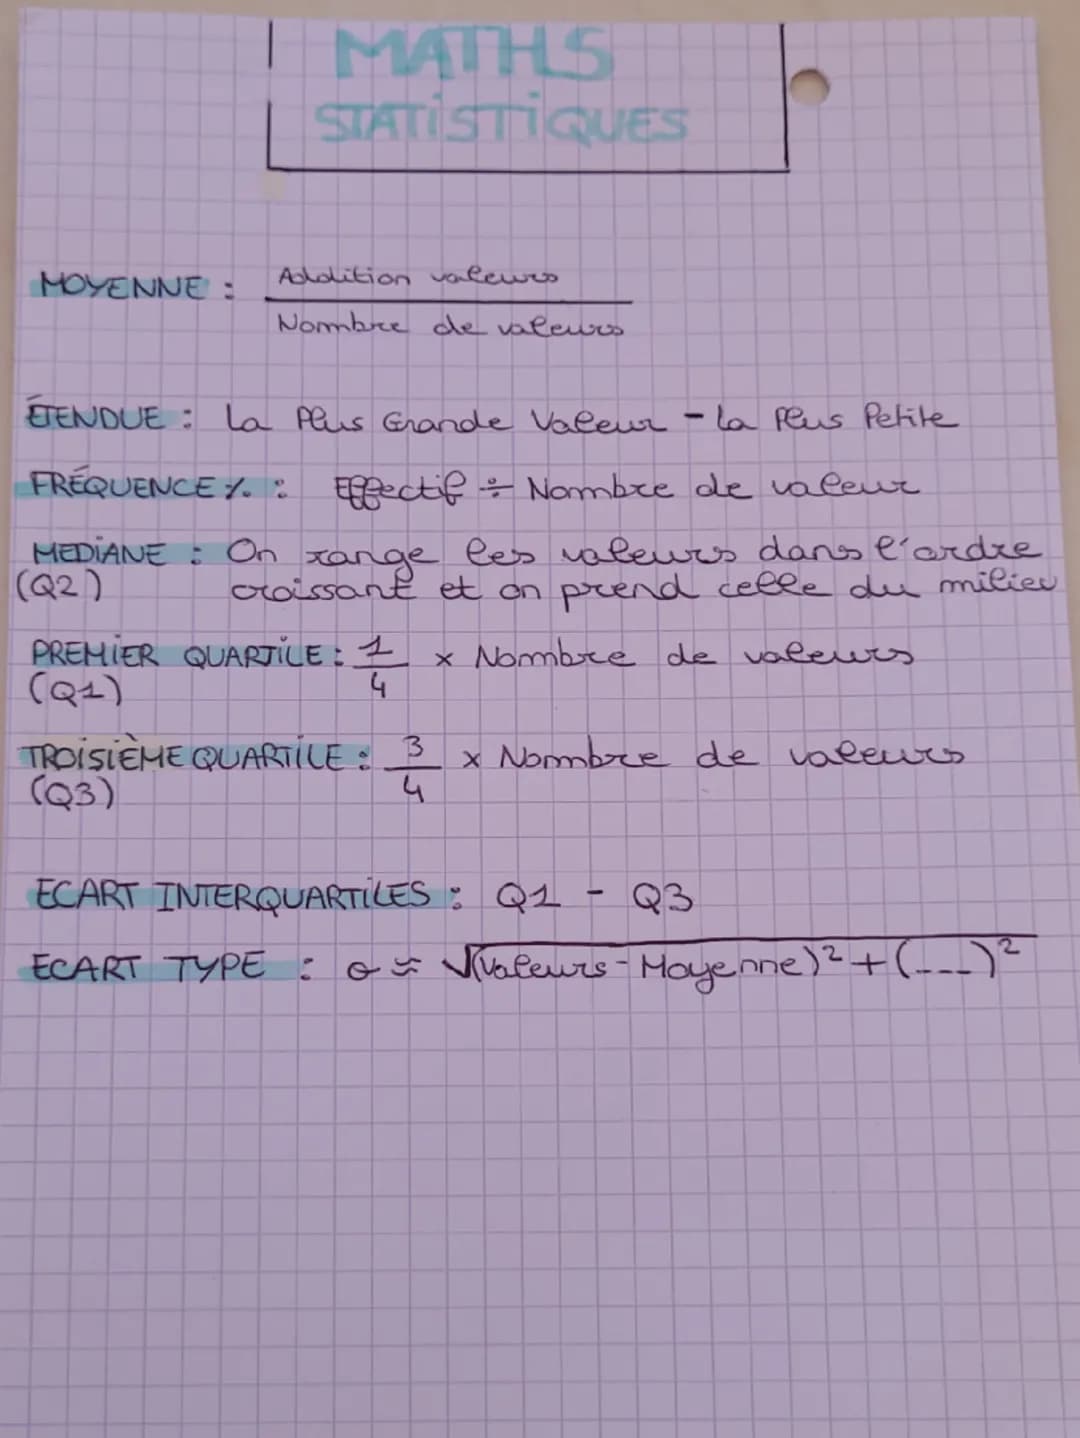 MATHS
STATISTIQUES
MOYENNE : Addition valeurs
Nombre de valeurs
ÉTENDUE : La Plus Grande Valeur - La Plus Petite
FRÉQUENCE % : Effectif ÷ Nombre de valeur
MEDIANE : On range les valeurs dans l'ordre
(Q2) croissant et on prend celle du milieu
PREMIER QUARTILE : 1/4 x Nombre de valeurs
(Q1)
TROISIÈME QUARTILE : 3/4 x Nombre de valeurs
(Q3)
ECART INTERQUARTILES : Q1 - Q3
ECART TYPE : σ ≈ √(Valeurs - Moyenne)² + (---)²